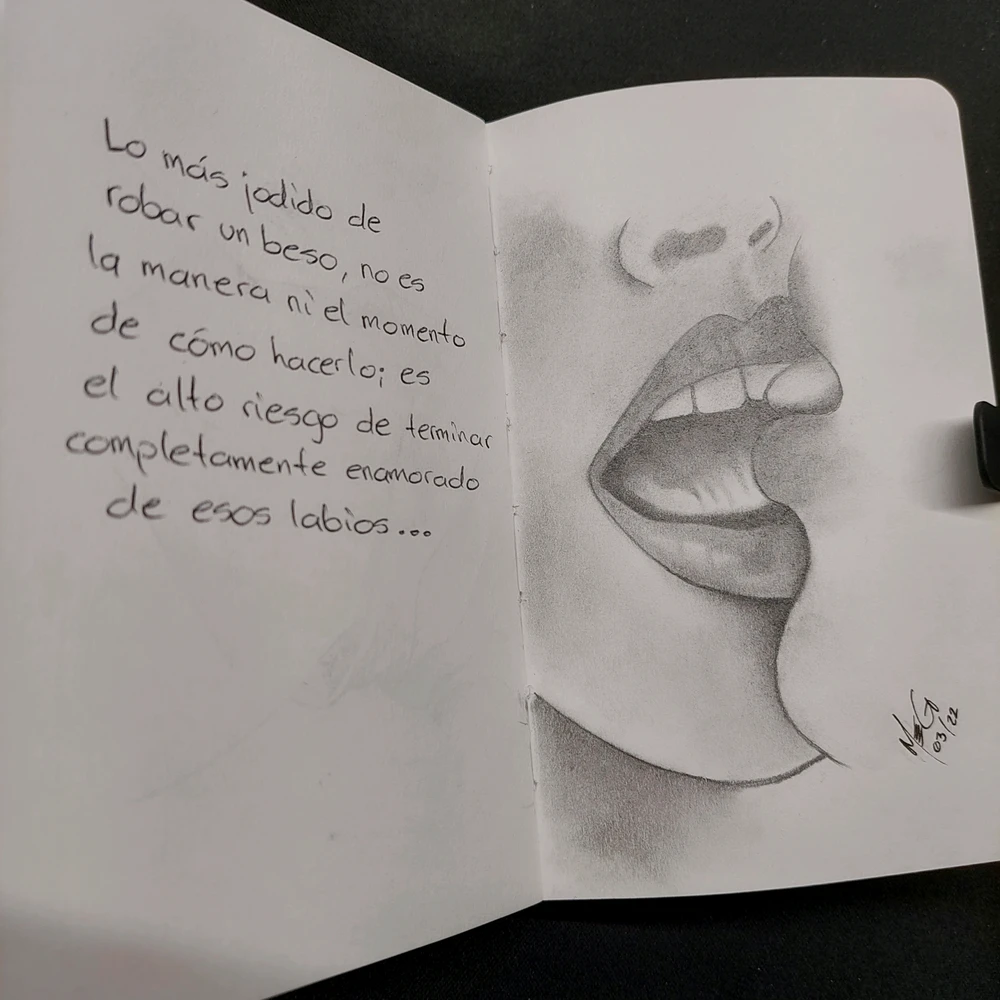 Lo más jodido de
robar un beso, no es
la manera ni el momento
de cómo hacerlo; es
el alto riesgo de terminar
completamente enamorado
de esos labios...
03/22